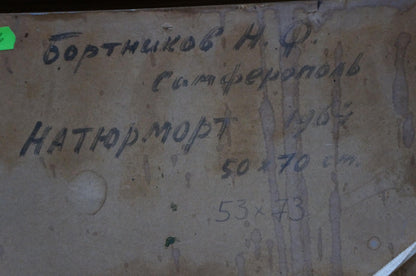 Бортников Н. Ф.
Симферополь
НАТЮРМОРТ 1964
50х70 см.
53х73